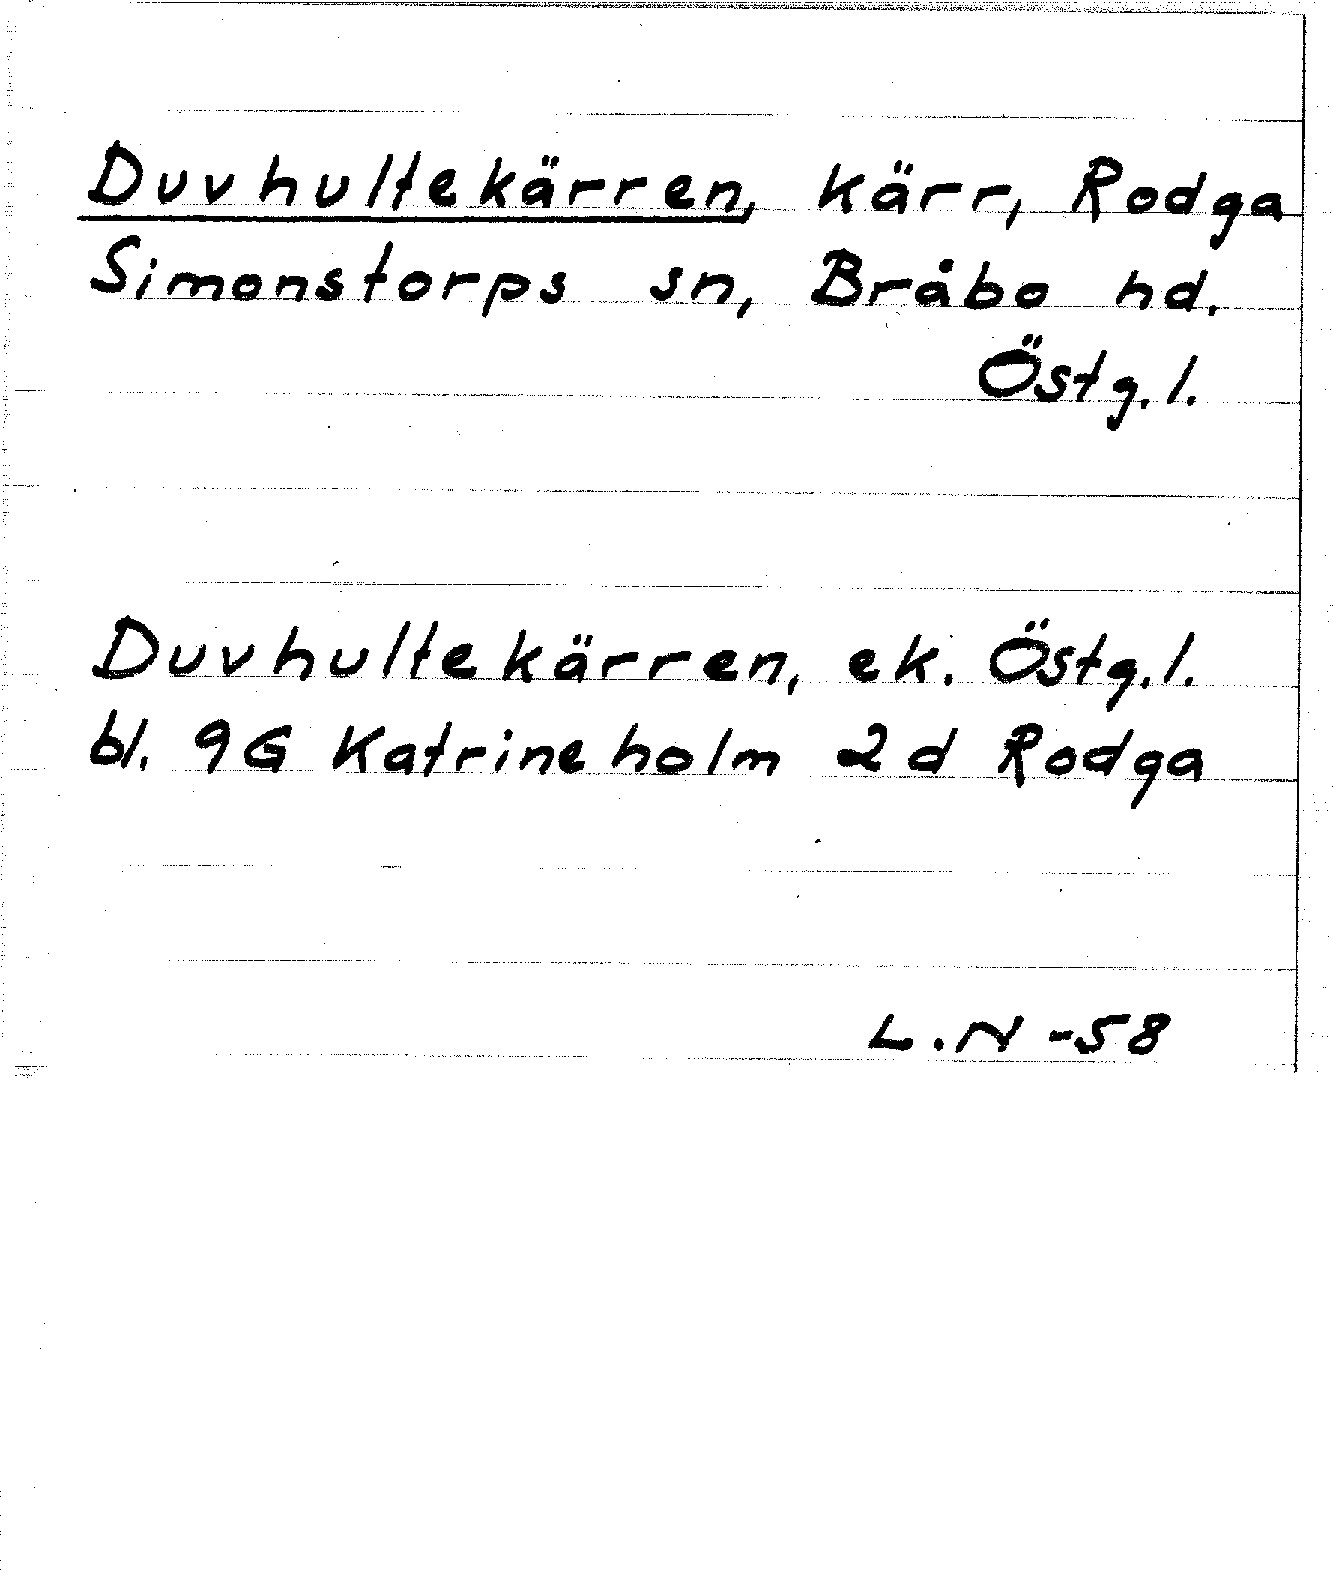 Duvhultekärren, kärr, Rodga
Simonstorps sn, Bråbo hd.
Östg.l.
Duvhultekärren, ek. Östg.l.
bl. 9G Katrineholm 2d Rodga
L.N -58